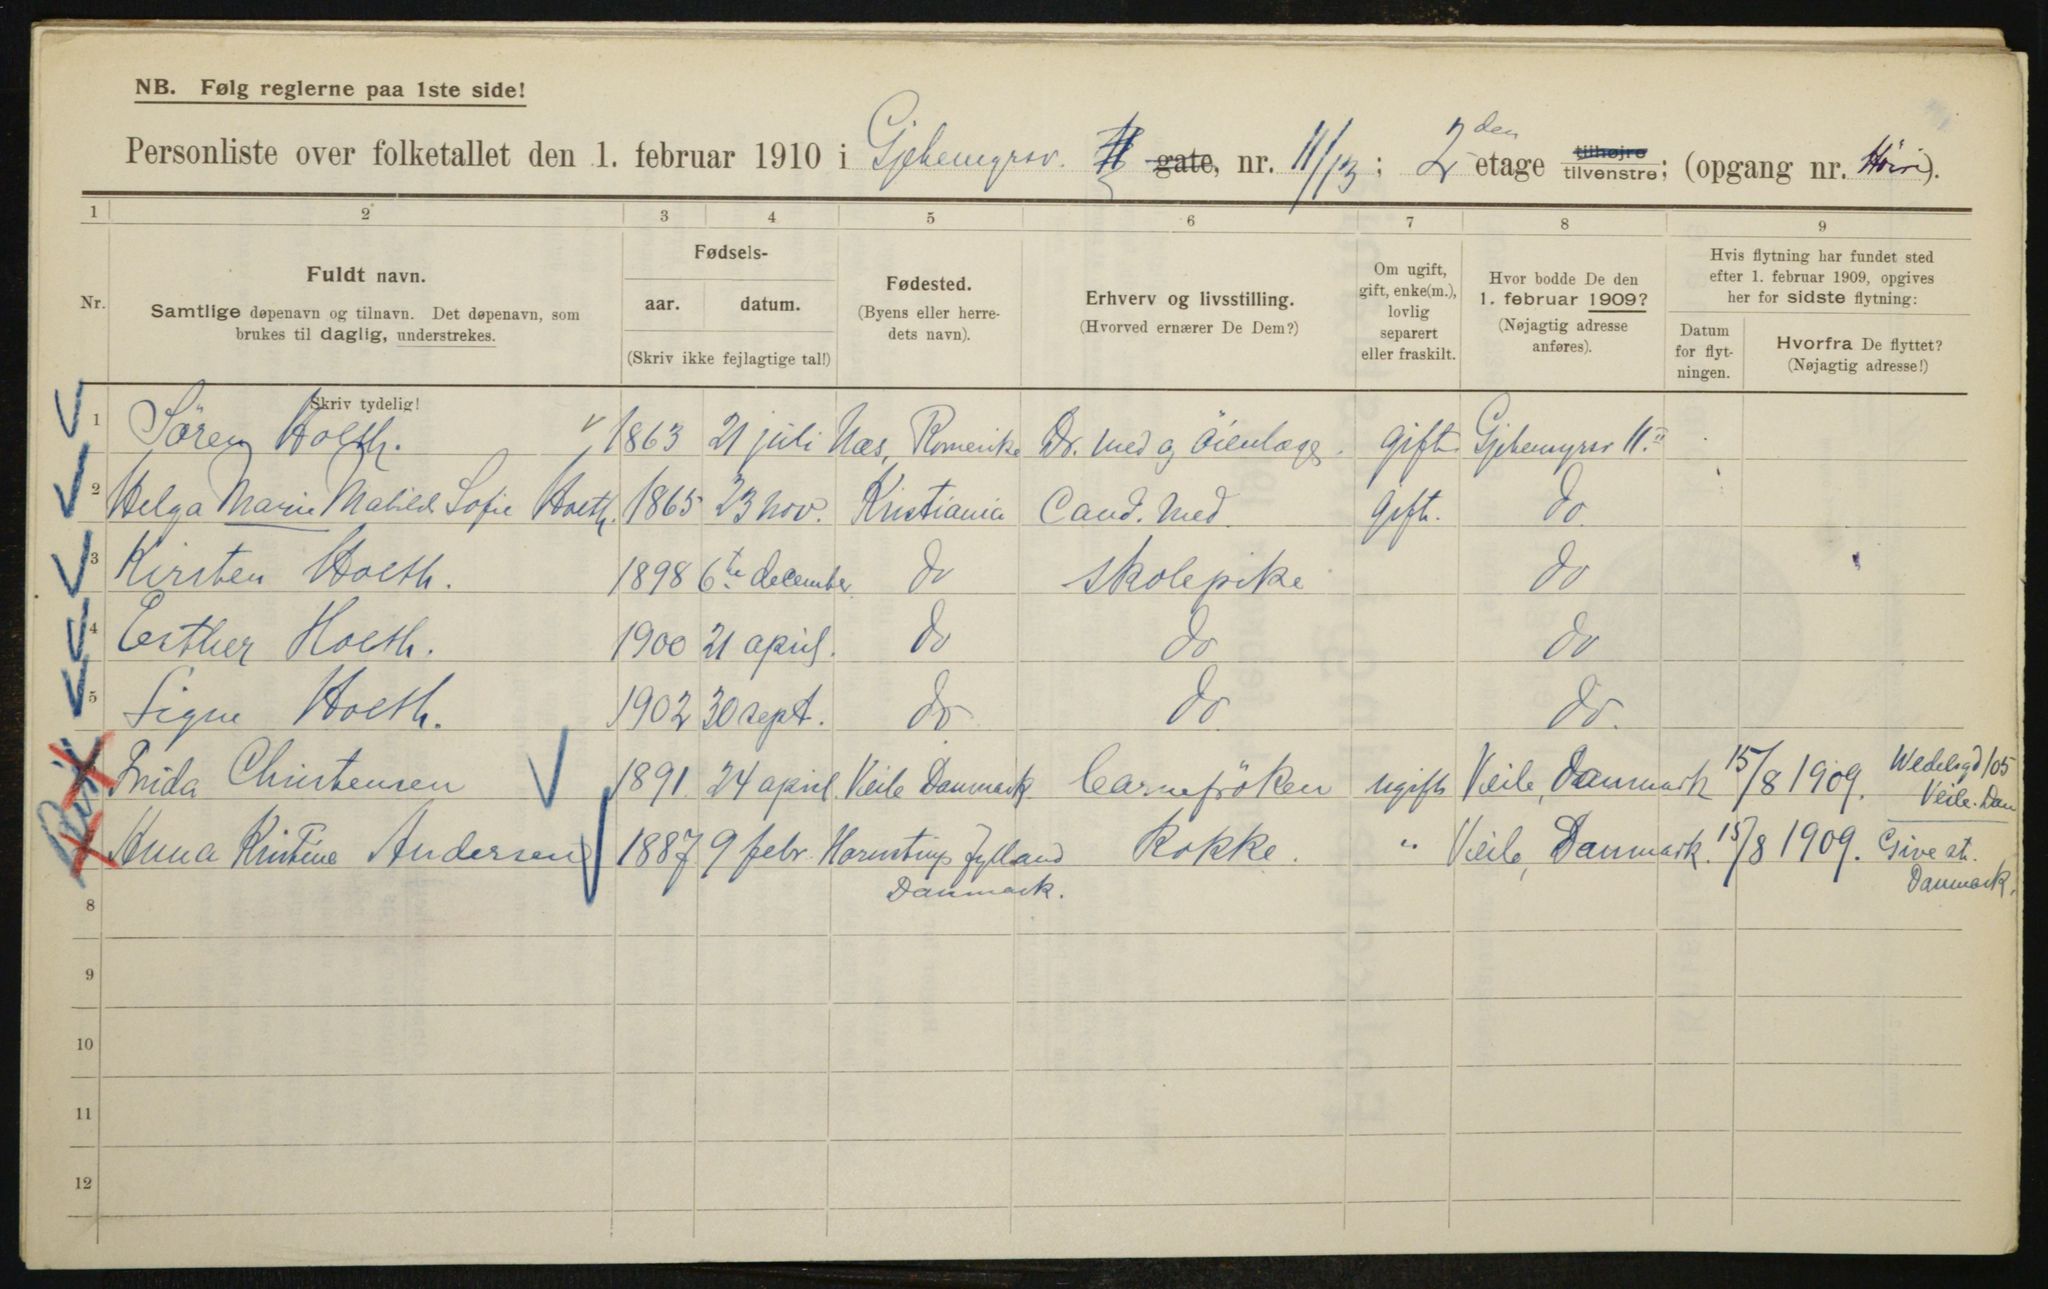 NB. Følg reglerne paa 1ste side!
Personliste over folketallet den 1. februar 1910 i Gjetemyrsv. gate, nr. 11/13; 2den etage tilhøjre tilvenstre; (opgang nr. ).
1 2 3 4 5 6 7 8 9
Nr.
Fuldt navn.
Samtlige døpenavn og tilnavn. Det døpenavn, som
brukes til daglig, understrekes.
Skriv tydelig!
Fødsels-
aar. datum.
(Skriv ikke fejlagtige tal!)
Fødested.
(Byens eller herre-
dets navn).
Erhverv og livsstilling.
(Hvorved ernærer De Dem?)
Om ugift,
gift, enke(m.),
lovlig
separert
eller fraskilt.
Hvor bodde De den
1. februar 1909?
(Nøjagtig adresse
anføres).
Hvis flytning har fundet sted
efter 1. februar 1909, opgives
her for sidste flytning:
Datum
for flyt-
ningen.
Hvorfra De flyttet?
(Nøjagtig adresse!)
1 Sören Holth. 1863 21 juli Næs, Romerike Dr. med og öienlæge. gift Gjetemyrsv 11.II
2 Helga Marie Mathild Sofie Holth. 1865 23 nov. Kristiania Cand. Med. gift. do
3 Kirsten Holth. 1898 6te december do skolepike do
4 Esther Holth. 1900 21 april. do do do
5 Signe Holth. 1902 30 sept. do do do.
Frida Christensen 1891. 24 april. Veile Danmark. barnefröken ugift Veile, Danmark 15/8 1909. Wedelsgd 105
Veile. Dan
Anna Kristine Andersen 1887 9 febr. Jylland Kokke. " Veile, Danmark. 15/8 1909. Give st.
Danmark. Danmark.
8
9
10
11
12